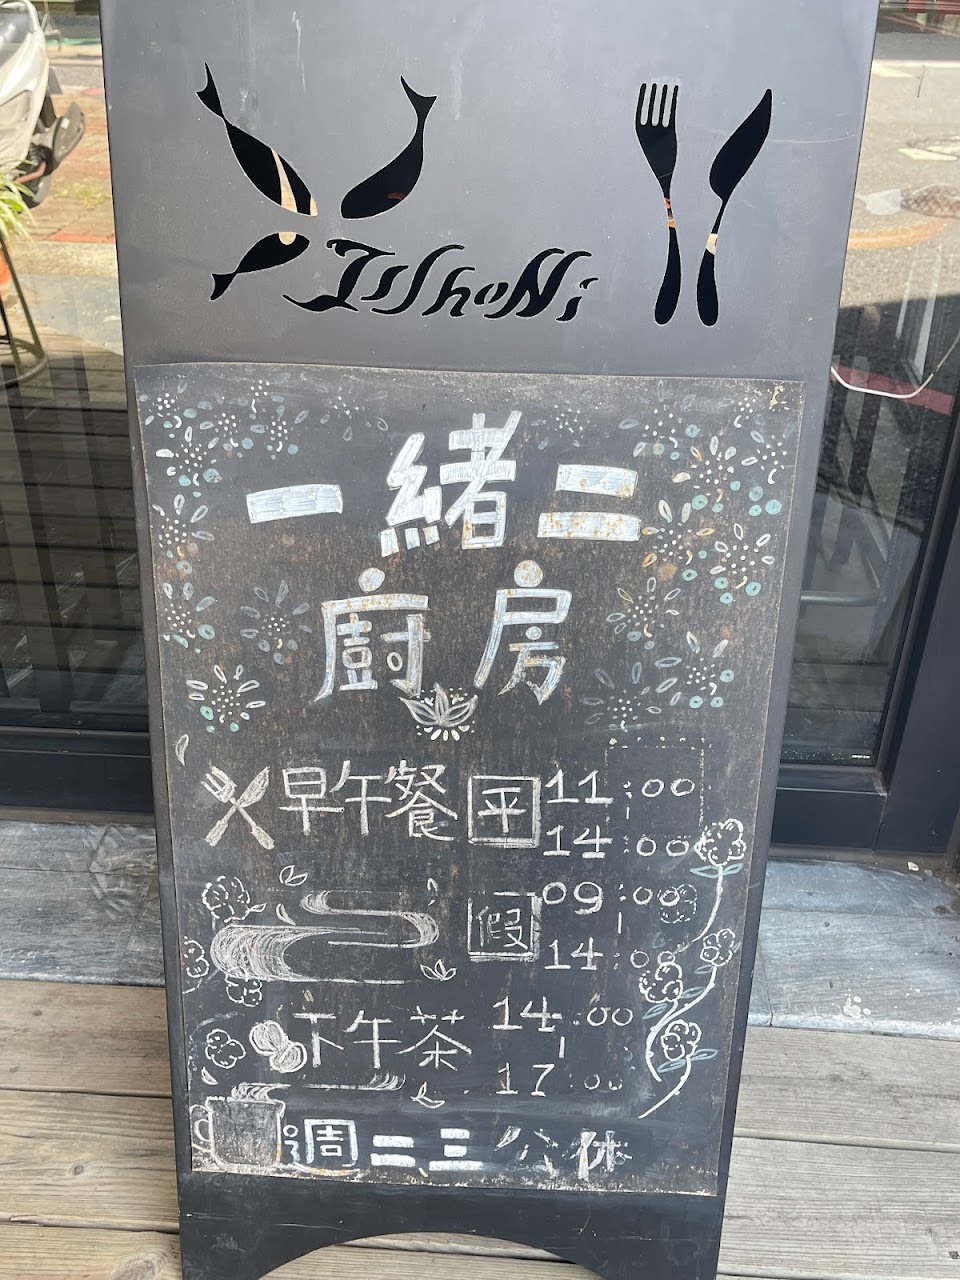 IsshoNi
一緒二
廚房
早午餐 平 11:00
14:00
假 09:00
14:00
下午茶 14:00
17:00
週二三公休